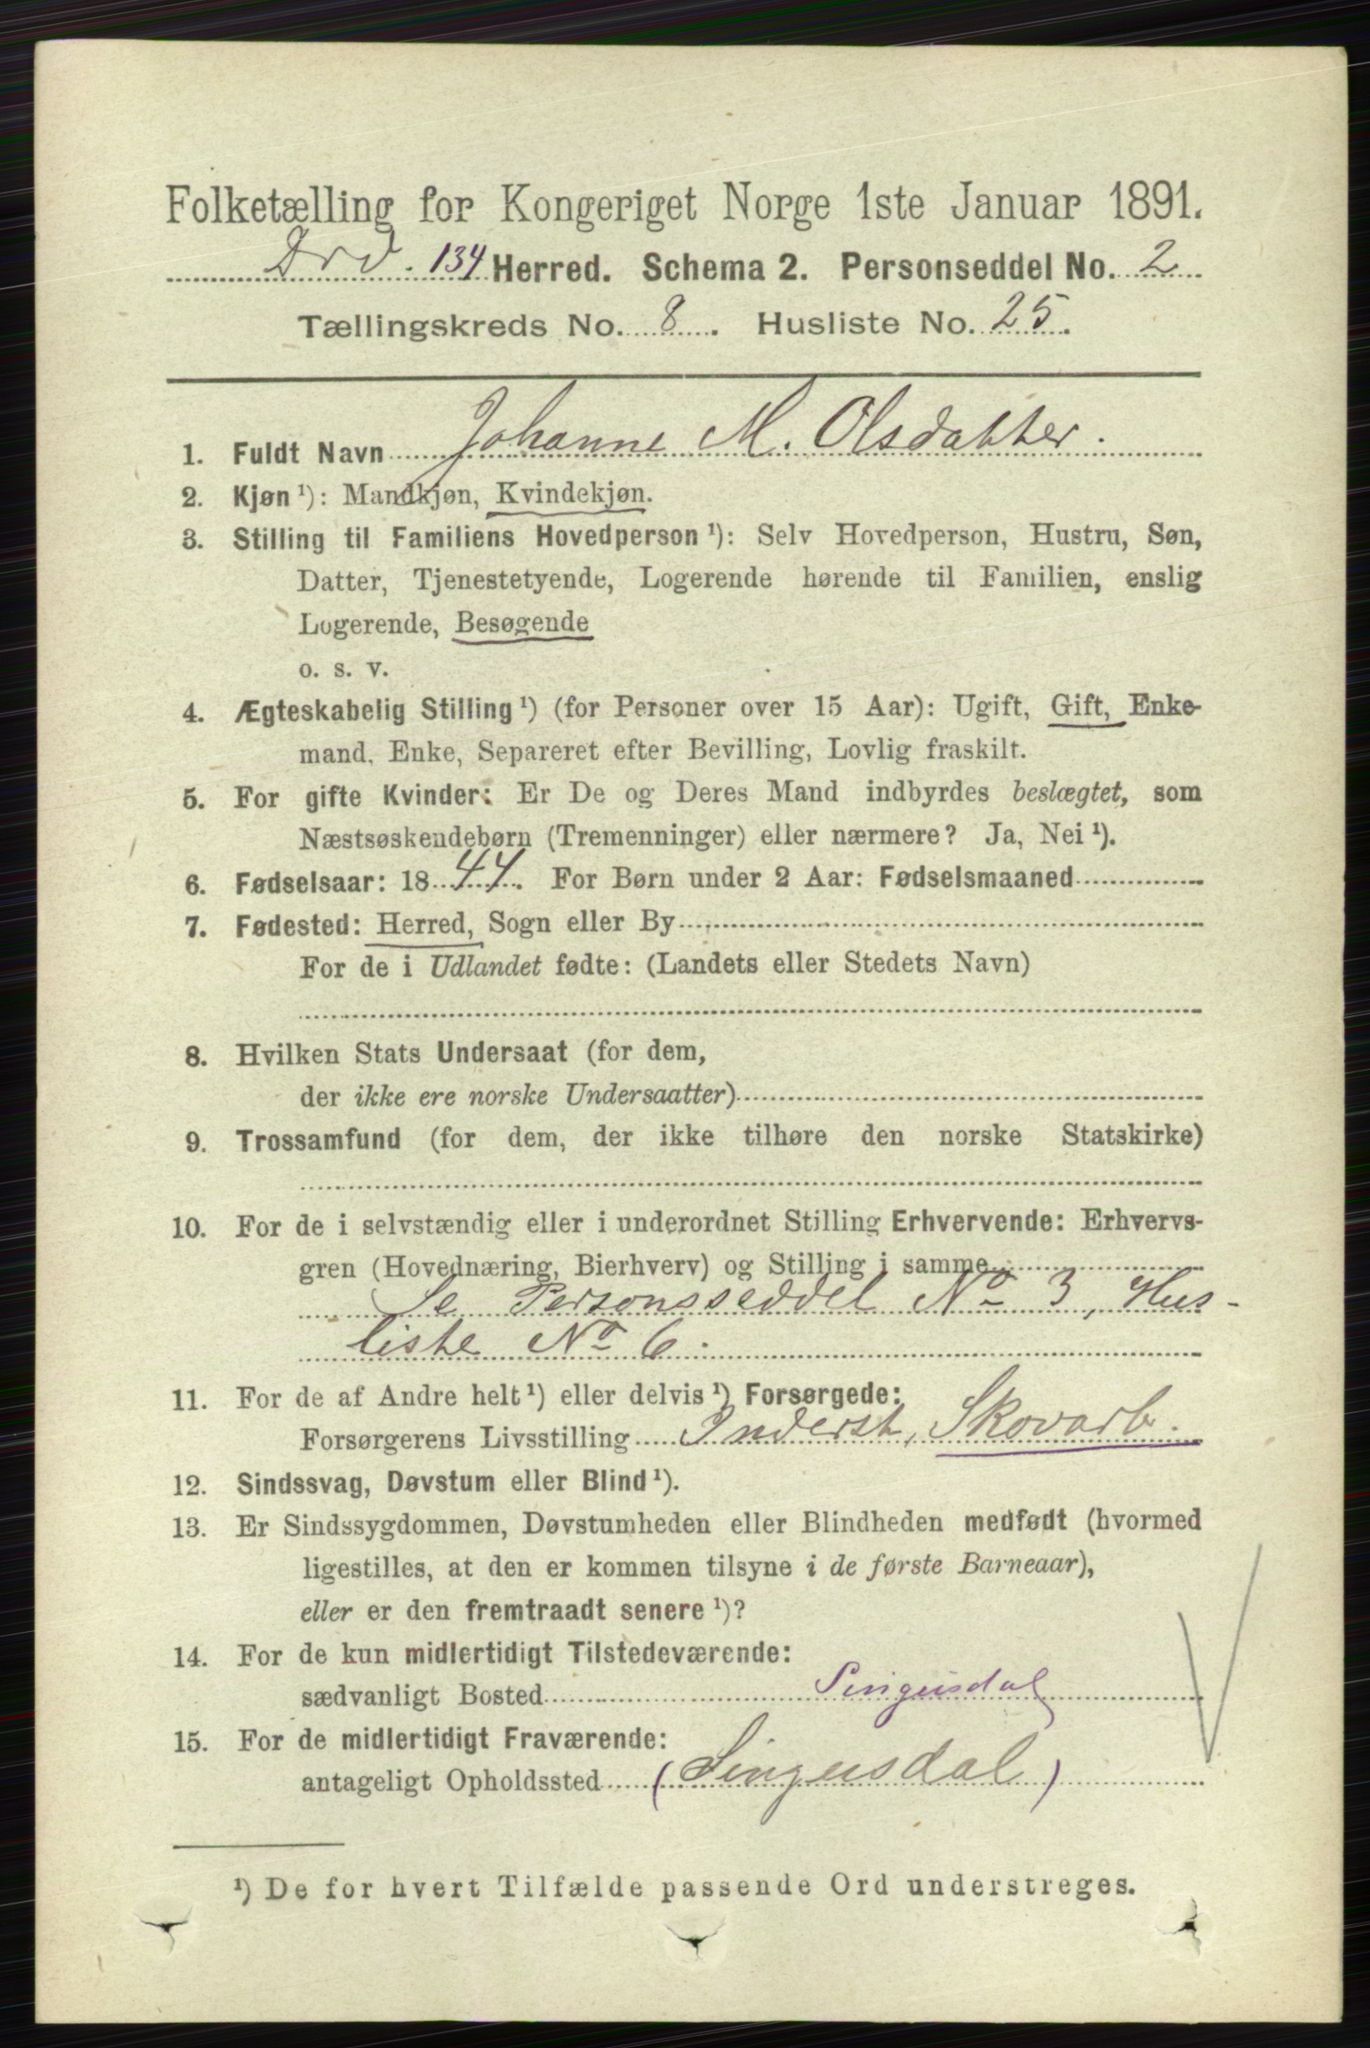 Folketælling for Kongeriget Norge 1ste Januar 1891.
134 Herred. Schema 2. Personseddel No. 2
Tællingskreds No. 8. Husliste No. 25.
1. Fuldt Navn Johanne M. Olsdatter.
2. Kjøn ¹): Mandkjøn, Kvindekjøn.
3. Stilling til Familiens Hovedperson ¹): Selv Hovedperson, Hustru, Søn,
Datter, Tjenestetyende, Logerende hørende til Familien, enslig
Logerende, Besøgende
o. s. v.
4. Ægteskabelig Stilling ¹) (for Personer over 15 Aar): Ugift, Gift, Enke-
mand, Enke, Separeret efter Bevilling, Lovlig fraskilt.
5. For gifte Kvinder: Er De og Deres Mand indbyrdes beslægtet, som
Næstsøskendebørn (Tremenninger) eller nærmere? Ja, Nei ¹).
6. Fødselsaar: 1844. For Børn under 2 Aar: Fødselsmaaned
7. Fødested: Herred, Sogn eller By
For de i Udlandet fødte: (Landets eller Stedets Navn)
8. Hvilken Stats Undersaat (for dem,
der ikke ere norske Undersaatter)
9. Trossamfund (for dem, der ikke tilhøre den norske Statskirke)
10. For de i selvstændig eller i underordnet Stilling Erhvervende: Erhvervs-
gren (Hovednæring, Bierhverv) og Stilling i samme
Se Personsseddel No 3, Hus-
liste No 6.
11. For de af Andre helt ¹) eller delvis ¹) Forsørgede:
Forsørgerens Livsstilling Inderst, Skovarb.
12. Sindssvag, Døvstum eller Blind ¹).
13. Er Sindssygdommen, Døvstumheden eller Blindheden medfødt (hvormed
ligestilles, at den er kommen tilsyne i de første Barneaar),
eller er den fremtraadt senere ¹)?
14. For de kun midlertidigt Tilstedeværende:
sædvanligt Bosted Singusdal
15. For de midlertidigt Fraværende:
antageligt Opholdssted (Singusdal)
¹) De for hvert Tilfælde passende Ord understreges.